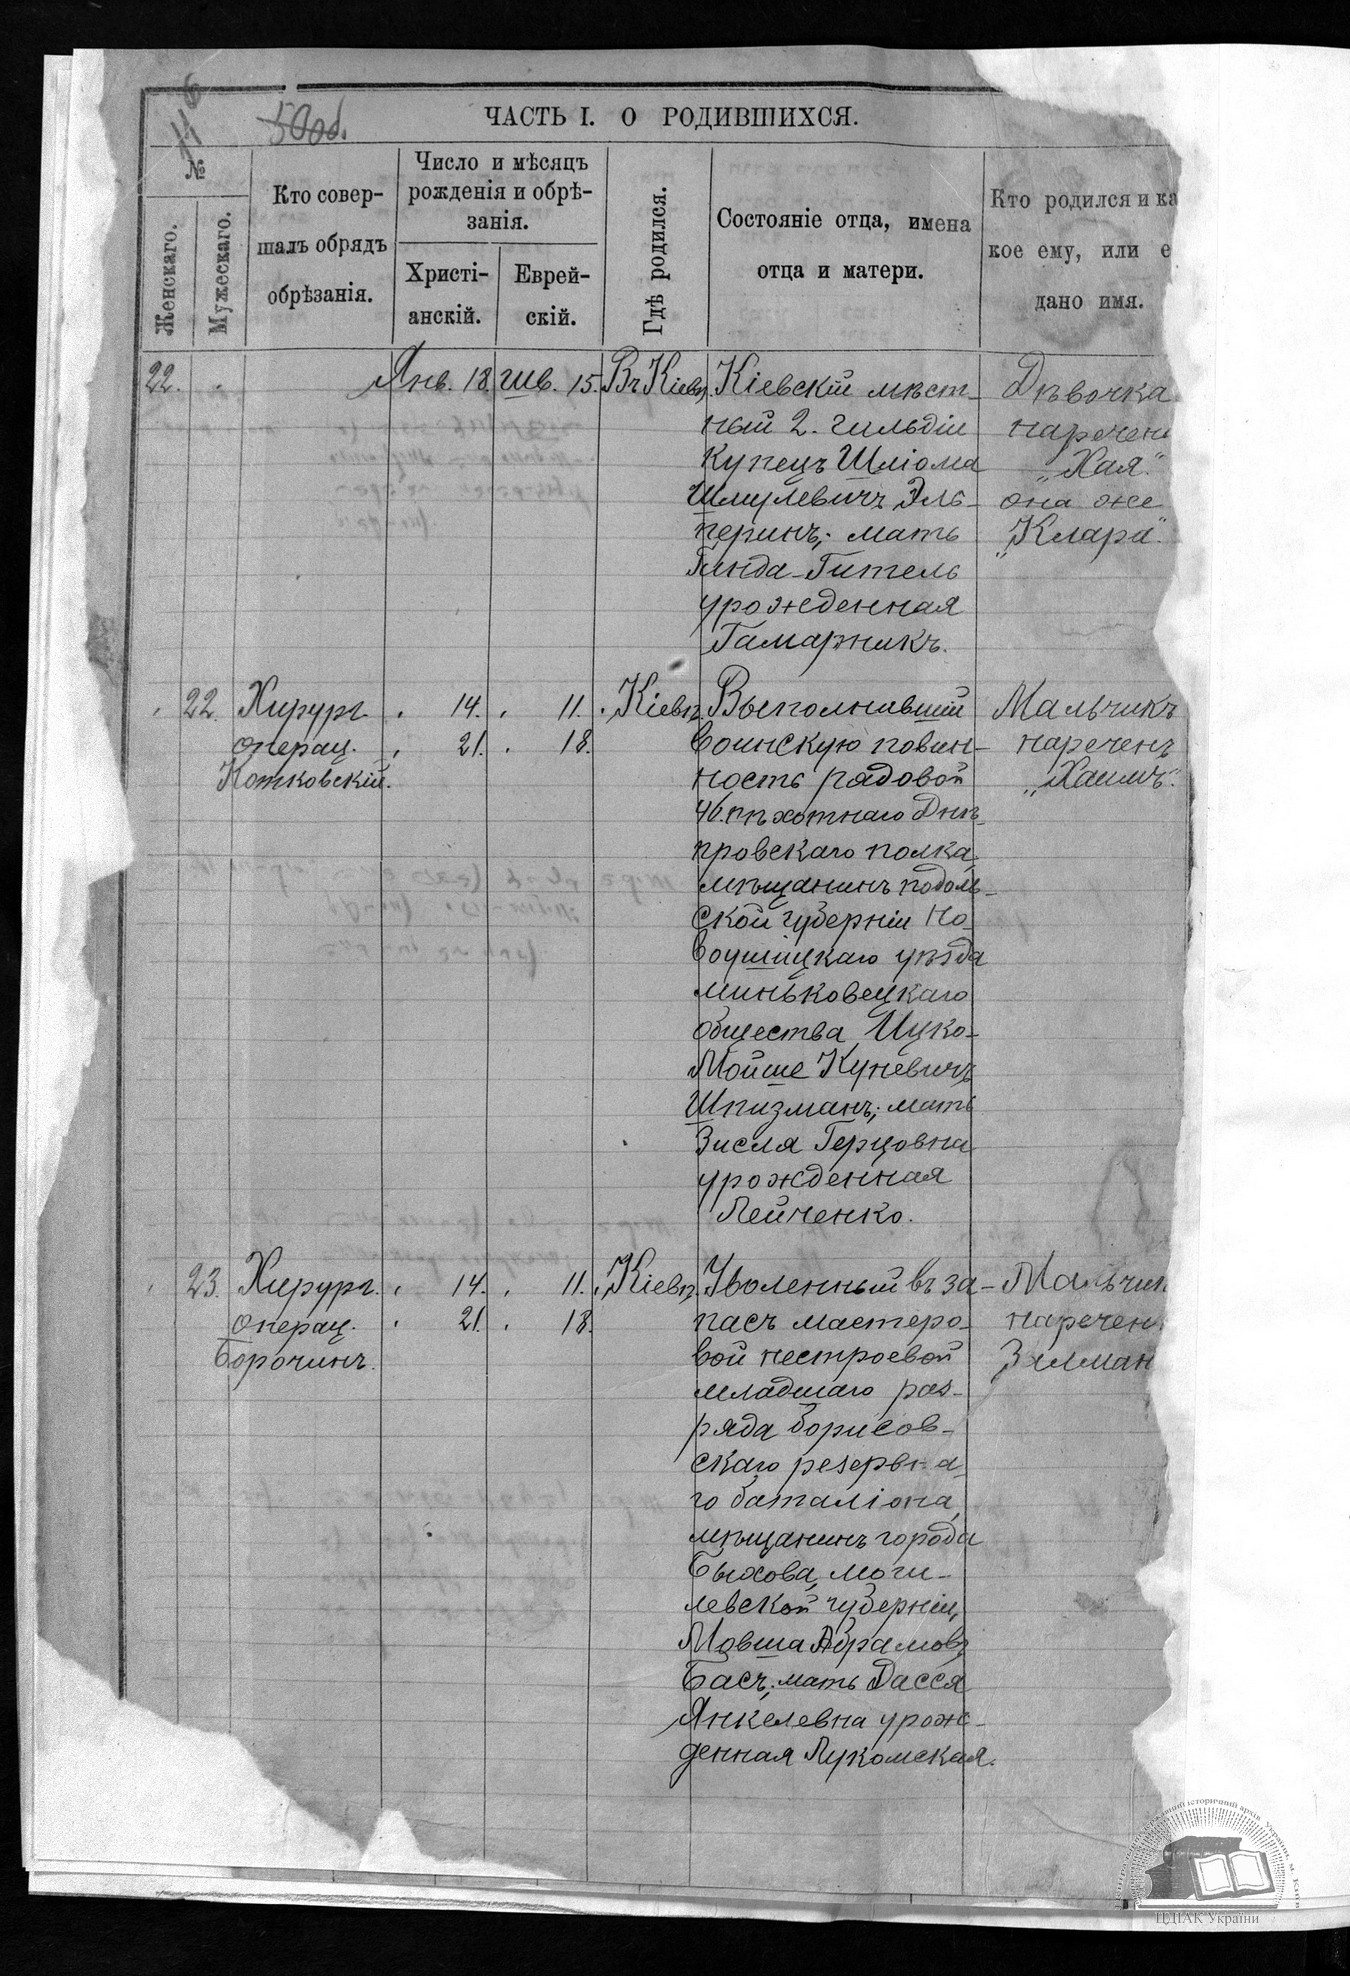 116
50об.
ЧАСТЬ I. О РОДИВШИХСЯ.
№
Женскаго.
Мужескаго.
Кто совер-
шалъ обрядъ
обрѣзанія.
Число и мѣсяцъ
рожденія и обрѣ-
занія.
Христі-
анскій.
Еврей-
скій.
Гдѣ родился.
Состояніе отца, имена
отца и матери.
Кто родился и ка
кое ему, или е
дано имя.
22. Янв. 18. Шв. 15. Въ Кіевѣ
Кіевскій мѣст-
ный 2. гильдіи
купецъ Шліома
Шмулевичъ Эль-
перинъ; мать
Гинда-Гитель
урожденная
Гамарникъ.
Дѣвочка
наречен
„Хая"
она же
„Клара".
22. Хирург. 14. 11. Кіевѣ
операц. 21. 18.
Котковскій.
Выполнившій
воинскую повин-
ность рядовой
46. пѣхотнаго Днѣ-
провскаго полка,
мѣщанинъ подоль-
ской губерніи Но-
воушицкаго уѣзда
миньковецкаго
общества Ицко-
Мойше Куневичъ
Шпизманъ; мать
Зисля Герцовна
урожденная
Лейченко.
Мальчикъ
нареченъ
„Хаимъ".
23. Хирург. 14. 11. Кіевѣ
операц. 21. 18.
Борочинъ.
Уволенный въ за-
пасъ мастеро-
вой нестроевой
младшаго раз-
ряда борисов-
скаго резервна-
го баталіона,
мѣщанинъ города
Быхова, моги-
левской губерніи,
Мовша Абрамовъ
Басъ; мать Дасся
Янкелевна урож-
денная Лукомская.
Мальчик
наречен
Залман
державний історичний архів України, м. Київ
ЦДІАК України